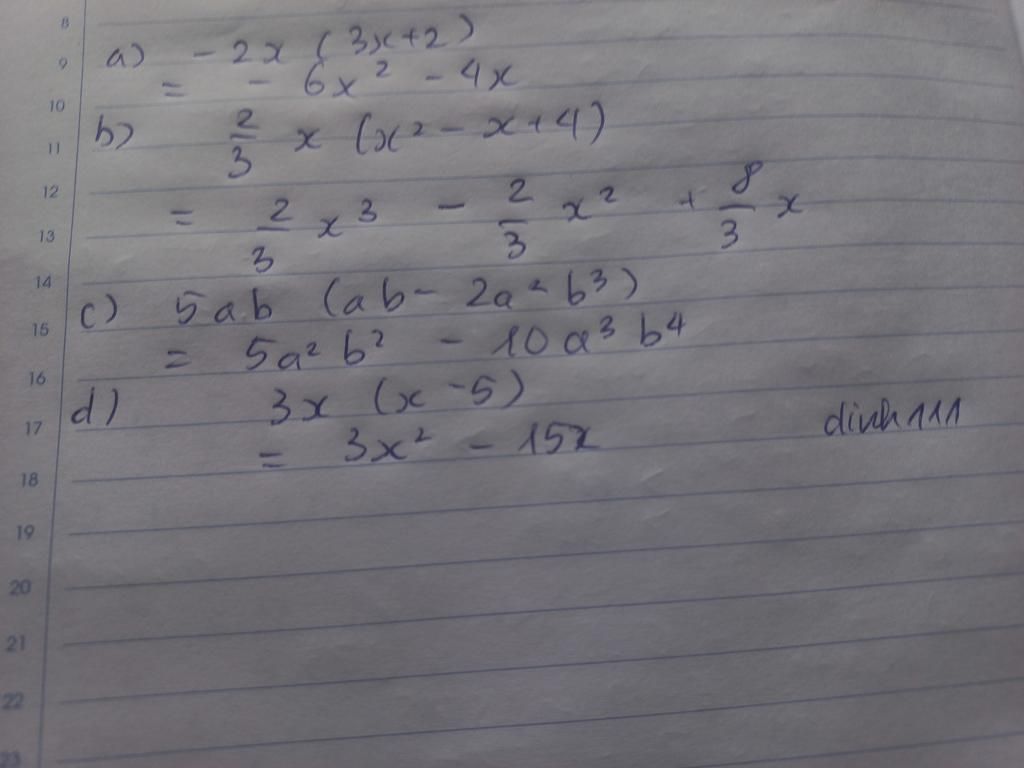 8
9
a) - 2x (3x+2)
= - 6x² - 4x
10
b) 2/3 x (x² - x + 4)
11
12
= 2/3 x³ - 2/3 x² + 8/3 x
13
14
c) 5ab (ab - 2a² b³)
15
= 5a² b² - 10a³ b⁴
16
d) 3x (x - 5)
17
= 3x² - 15x dinh111
18
19
20
21
22
23